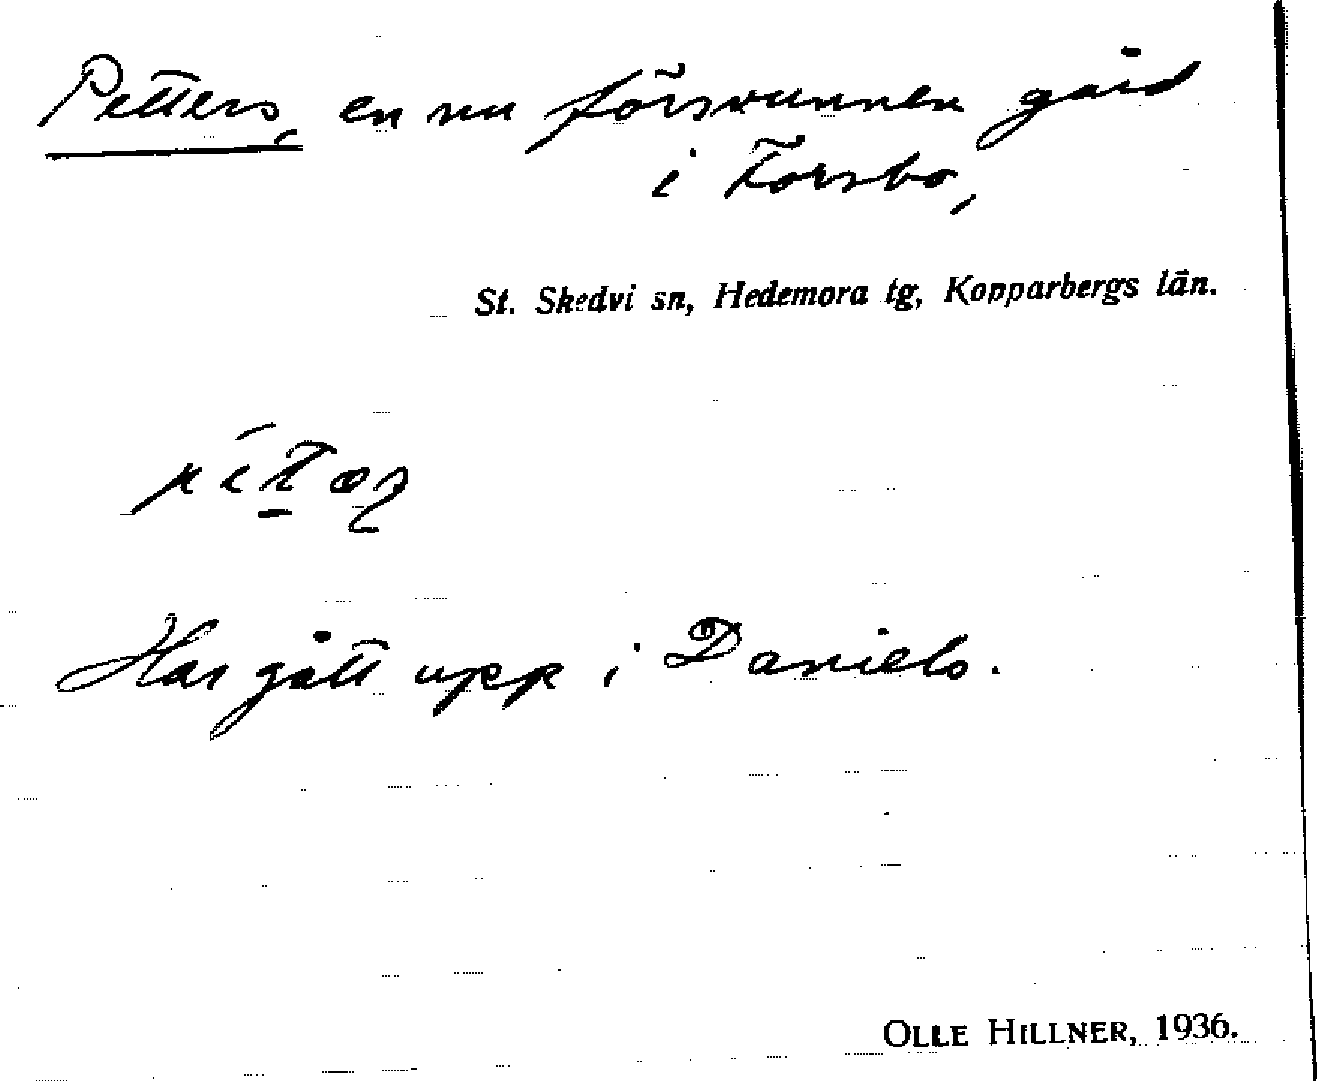 Petters, en nu försvunnen gård
i Forsbo,
St. Skedvi sn, Hedemora tg, Kopparbergs län.
Har gått upp i Daniels.
OLLE HILLNER, 1936.